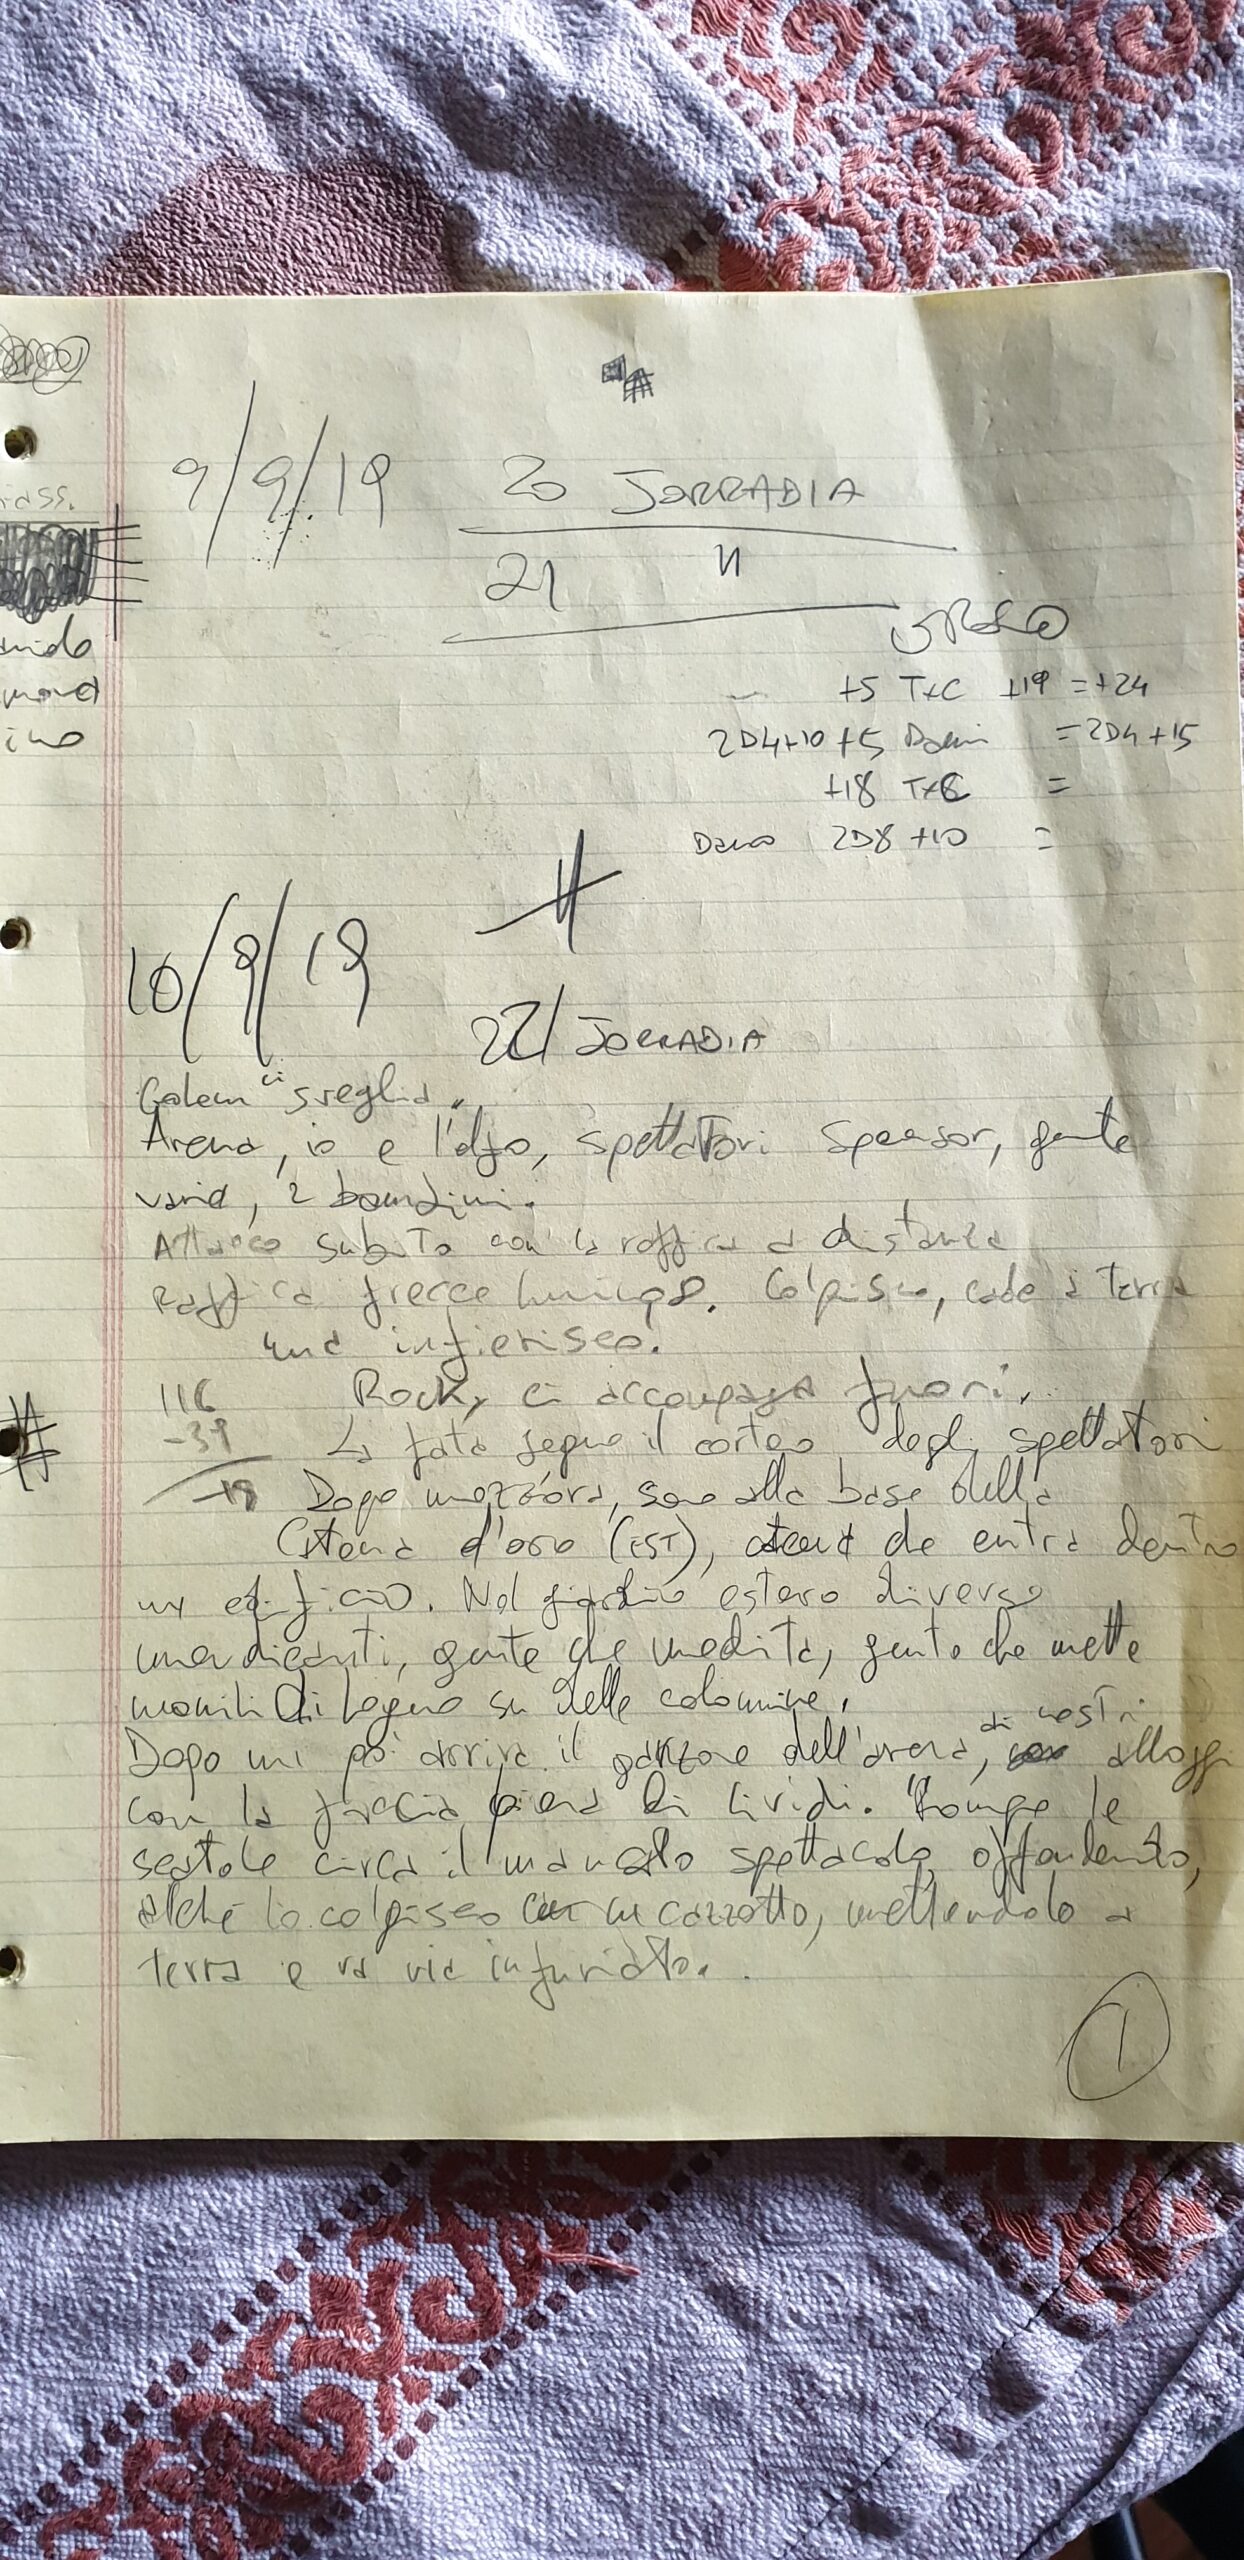 iass.
9/9/19 20 JORRADIA
21 "
+5 TxC +19 = +24
2D4+10 +5 Danni = 2D4+15
+18 TxC =
Danno 2D8 +10 =
10/9/19
22/ JORRADIA
Golem ci sveglia.
Arena, io e l'elfo, spettatori sponsor, gente
varia, 2 bambini.
Attacco subito con la raffica a distanza
Raffica frecce . Colpisco, cade a terra
ma infierisco.
116 Rocky ci accompagna fuori.
-39 ↳ fata segue il corteo degli spettatori
-19 Dopo mezz'ora, sono alla base della
Catena d'oro (EST), catena che entra dentro
un edificio. Nel giardino esterno diverse
mendicanti, gente che medita, gente che mette
monili di legno su delle colonnine.
Dopo un po' arriva il garzone dell'arena, ai nostri alloggi
con la faccia piena di lividi. Rompe le
scatole circa il mancato spettacolo, offendendo,
alché lo colpisco con un cazzotto, mettendolo a
terra e va via infuriato.
1